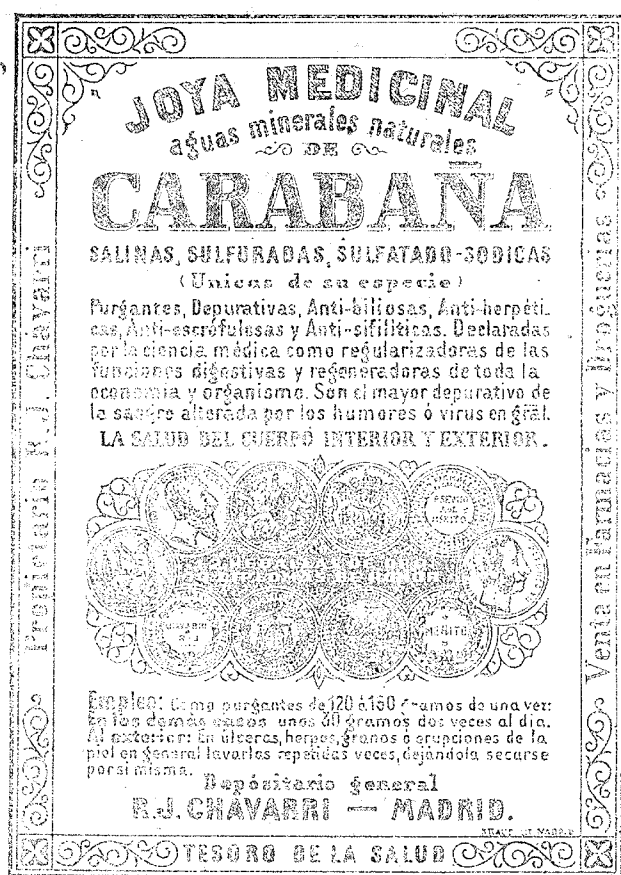 JOYA MEDICINAL
aguas minerales naturales
DE
CARABAÑA
SALINAS, SULFURADAS, SULFATADO-SODICAS
(Unicas de su especie)
Purgantes, Depurativas, Anti-biliosas, Anti-herpéti-
cas, Anti-escrófulosas y Anti-sifilíticas. Declaradas
por la ciencia médica como regularizadoras de las
funciones digestivas y regeneradoras de toda la
economia y organismo. Son el mayor depurativo de
la sangre alterada por los humores ó virus en gral.
LA SALUD DEL CUERPO INTERIOR Y EXTERIOR.
CHAVARRI
R.J.
MÉRITO
Empleo: Como purgantes de 120 á 150 gramos de una vez:
En los demás casos unos 30 gramos dos veces al dia.
Al exterior: En úlceras, herpes, granos ó erupciones de la
piel en general lavarlas repetidas veces, dejándola secarse
por si misma.
Depósitario general
R.J. CHAVARRI — MADRID.
TESORO DE LA SALUD
Propietario R.J. Chávarri
Venta en Farmacias y Droguerias